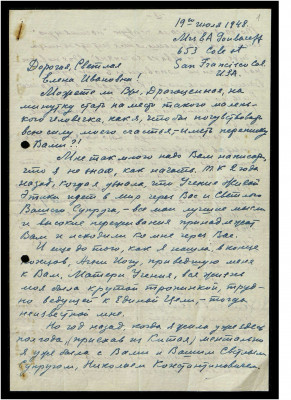 19го июля 1948.
Mrs BA
653 Cole st
San Francisco Cal.
USA.
Дорогая, Светлая
Елена Ивановна!
Можете ли Вы, Драгоценная, на
минутку стать на место такого малень-
кого человека, как я, что бы почувствовать
всю силу моего счастья – иметь переписку
с Вами?!
Мне так много надо Вам написать,
что я не знаю, как начать. Т.к. 2 года
назад, когда я узнала что Учение Живой
Этики идет в мир через Вас и Светлого
Вашего Супруга – все мои лучшие мысли
и высокие переживания принадлежат
Вам и исходили ко мне через Вас.
И еще до того, как я нашла, в конце
концов, Агни Йогу, приведшую меня
к Вам, Матери Учения, вся жизнь
моя была крутой тропинкой, труд-
но ведущей к Единой Цели, – тогда
неизвестной мне.
Но год назад, когда я жила уже здесь
полгода, (приехав из Китая) ментально
я уже была с Вами и Вашим Светлым
Супругом, Николаем Константиновичем